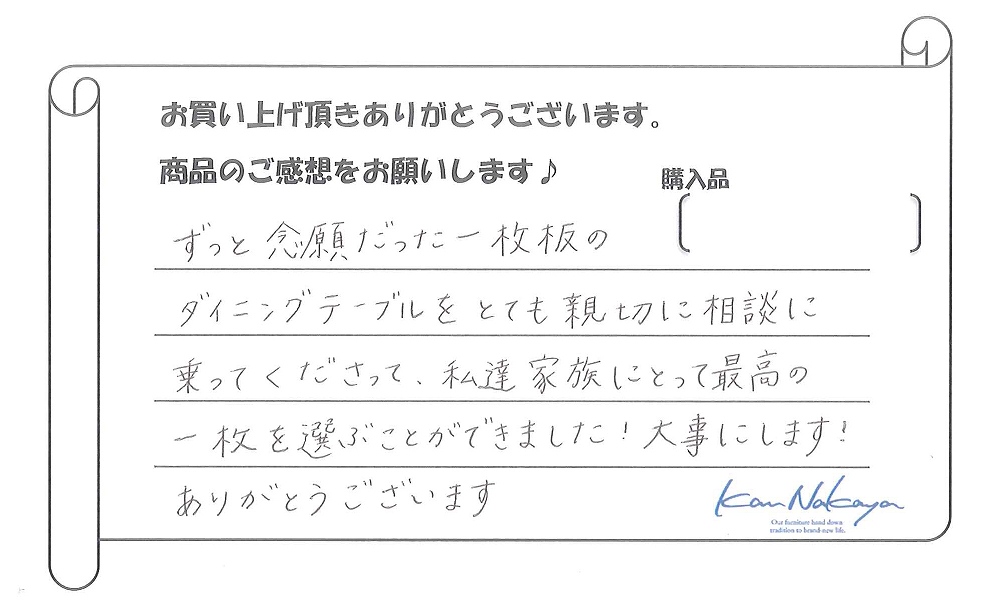 お買い上げ頂きありがとうございます。
商品のご感想をお願いします♪
購入品
ずっと念願だった一枚板の
ダイニングテーブルをとても親切に相談に
乗ってくださって、私達家族にとって最高の
一枚を選ぶことができました！大事にします！
ありがとうございます
Kan Nakaya
Our furniture hand down
tradition to brand-new life.